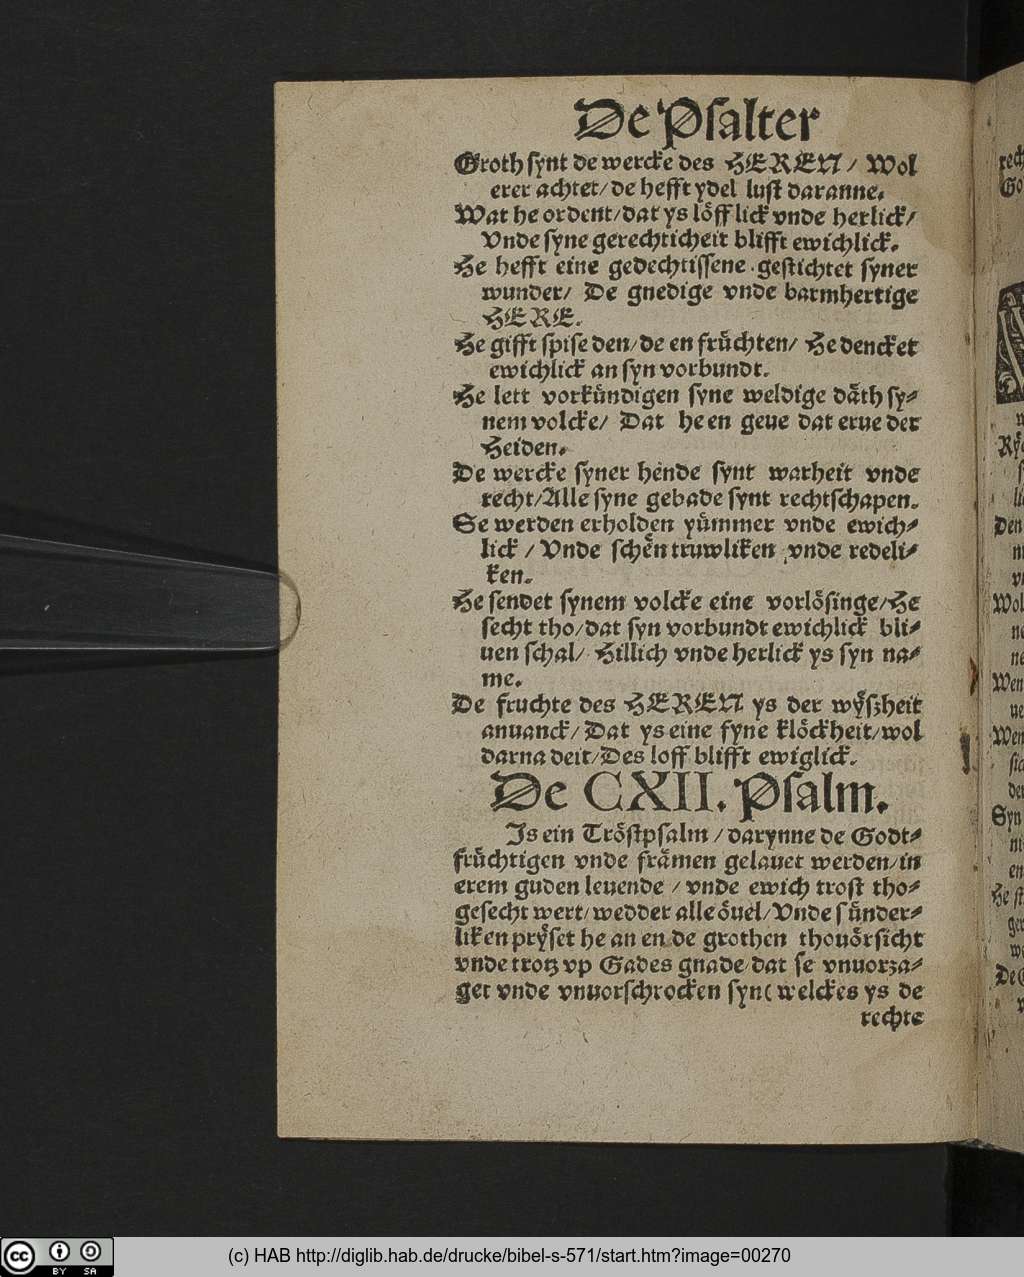 De Psalter
Groth synt de wercke des HEREN / Wol
erer achtet / de hefft ydel lust daranne.
Wat he ordent / dat ys löfflick vnde herlick /
Vnde syne gerechticheit blifft ewichlick.
He hefft eine gedechtissene gestichtet syner
wunder / De gnedige vnde barmhertige
HERE.
He gifft spise den / de en früchten / He dencket
ewichlick an syn vorbundt.
He lett vorkündigen syne weldige däth sy⸗
nem volcke / Dat he en geue dat erue der
Heiden.
De wercke syner hende synt warheit vnde
recht / Alle syne gebade synt rechtschapen.
Se werden erholden yümmer vnde ewich⸗
lick / Vnde schën truwliken vnde redeli⸗
ken.
He sendet synem volcke eine vorlösinge / He
secht tho / dat syn vorbundt ewichlick bli⸗
uen schal / Hillich vnde herlick ys syn na⸗
me.
De fruchte des HEREN ys der wyßheit
anuanck / Dat ys eine fyne klöckheit / wol
darna deit / Des loff blifft ewiglick.
De CXII. Psalm.
Is ein Tröstpsalm / darynne de Godt⸗
früchtigen vnde främen gelauet werden / in
erem guden leuende / vnde ewich trost tho⸗
gesecht wert / wedder alle öuel / Vnde sünder⸗
liken pryset he an en de grothen thouörsicht
vnde trotz vp Gades gnade dat se vnuorza⸗
get vnde vnuorschrocken syn ( welckes ys de
rechte
(c) HAB http://diglib.hab.de/drucke/bibel-s-571/start.htm?image=00270
cc BY SA